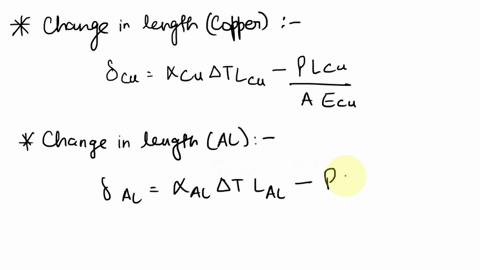 * Change in length (Copper) :-
δCu = αCu ΔT LCu − P LCu / A ECu
* Change in length (AL) :-
δAL = αAL ΔT LAL − P